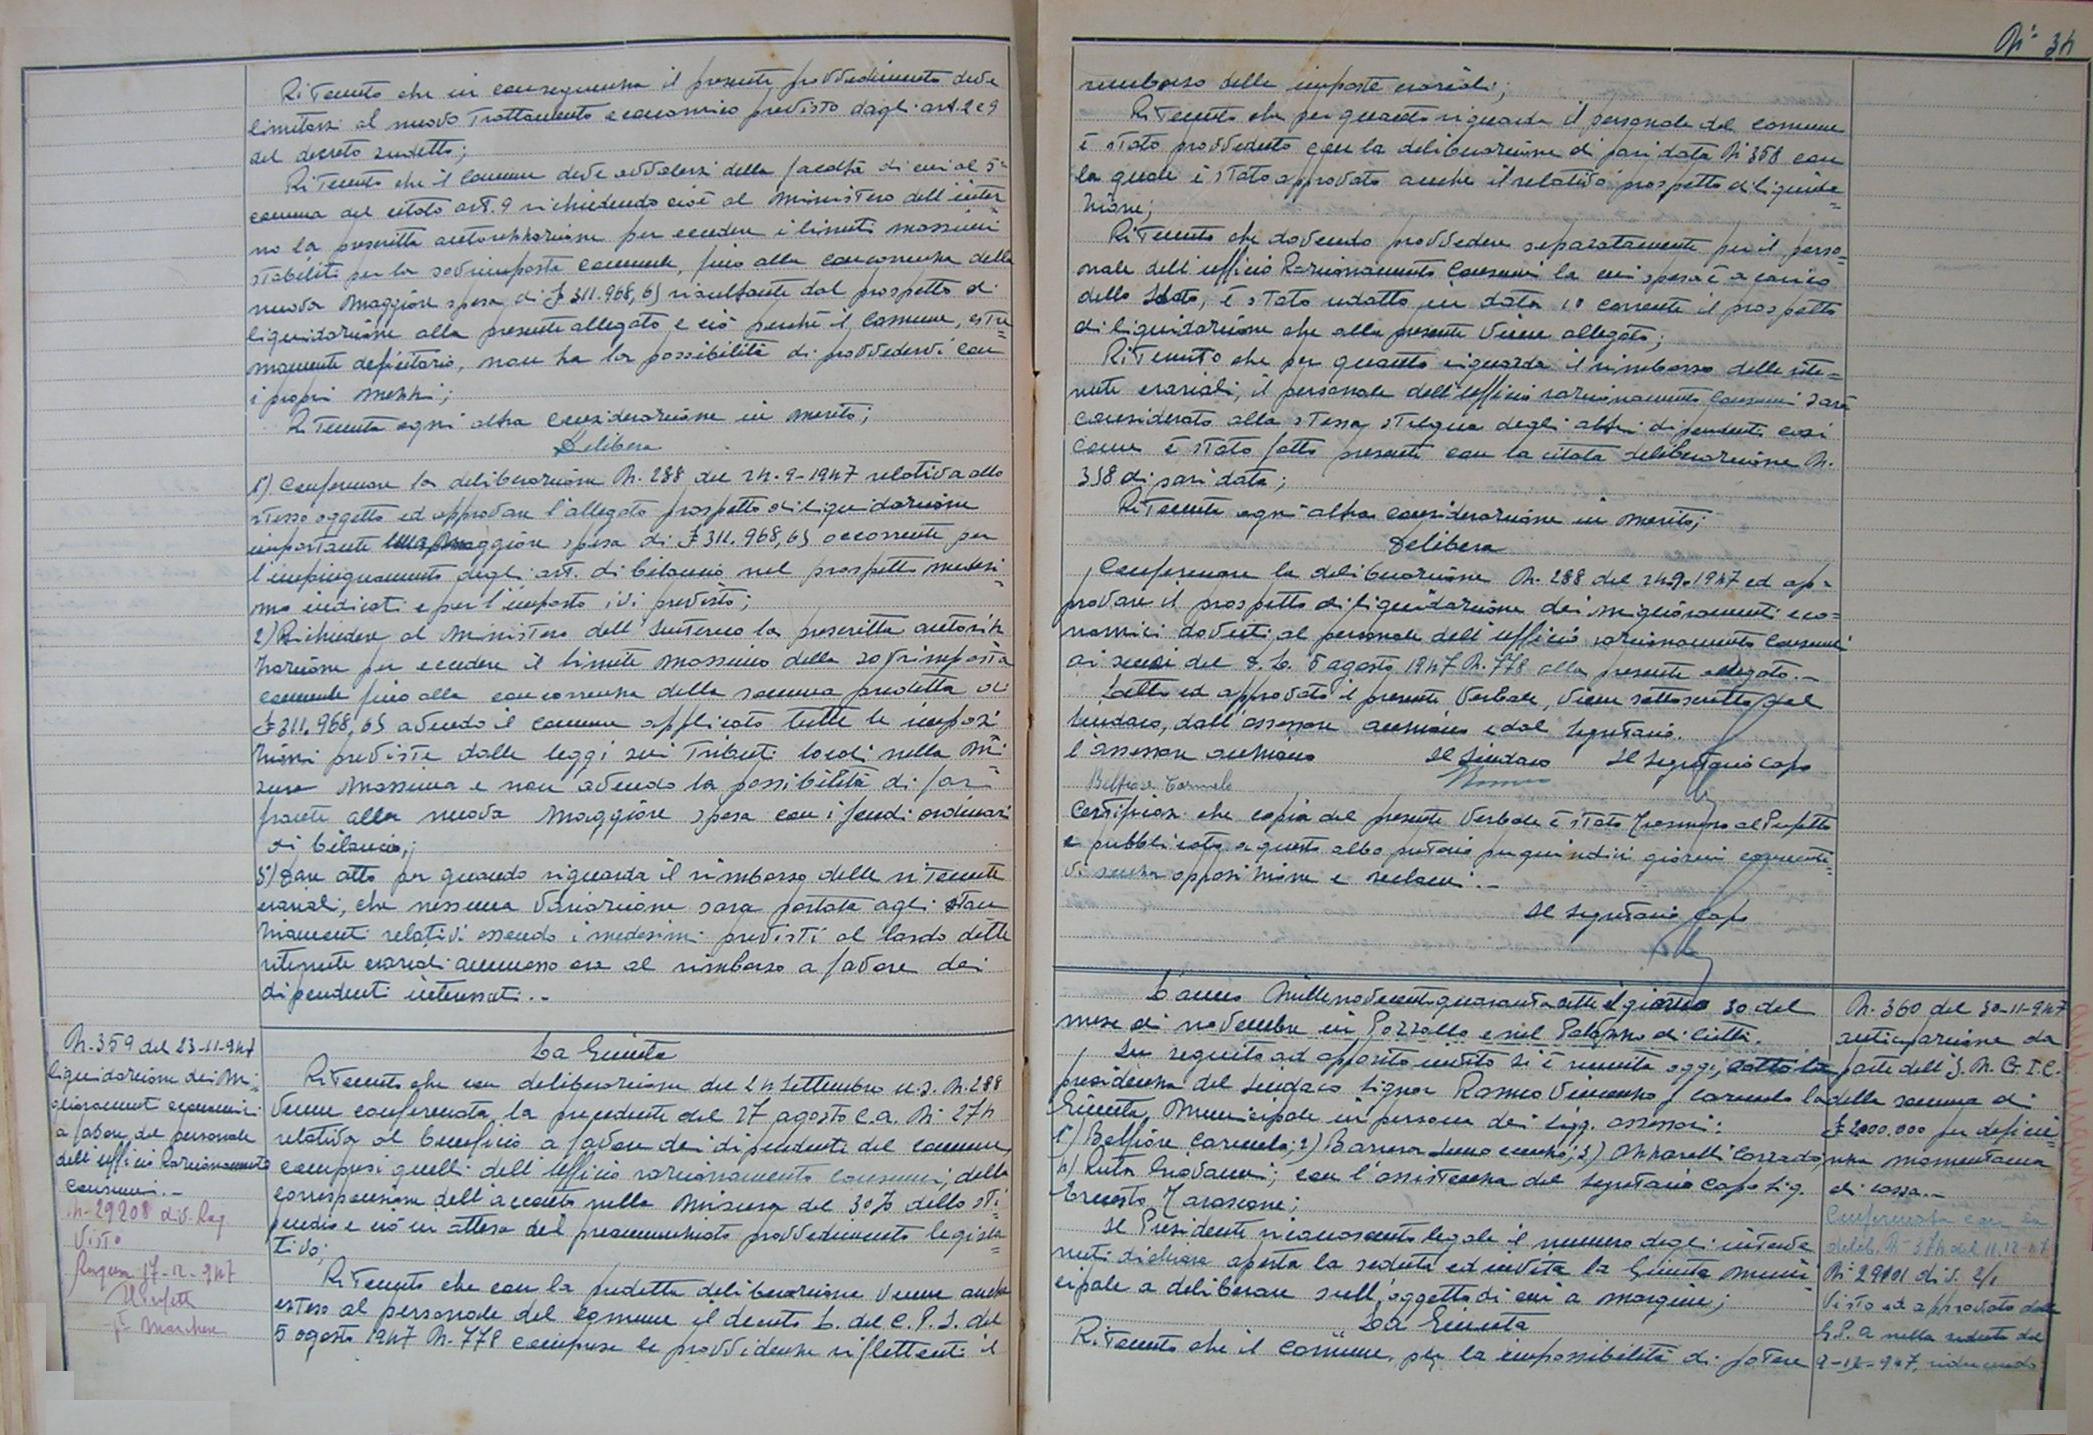 Ritenuto che in conseguenza il presente provvedimento deve
limitarsi al nuovo trattamento economico previsto dagli art. 2 e 9
del decreto sudetto;
Ritenuto che il Comune deve avvalersi della facoltà di cui al 5°
comma del citato art. 9 richiedendo cioè al Ministero dell'inter=
no la prescritta autorizzazione per eccedere i limiti massimi
stabiliti per la sovrimposta comunale, fino alla concorrenza della
nuova maggiore spesa di £ 311.968,65 risultante dal prospetto di
liquidazione alla presente allegato e ciò perché il Comune, estre=
mamente deficitario, non ha la possibilità di provvedervi con
i propri mezzi;
Ritenuta ogni altra considerazione in merito;
Delibera
1°) Confermare la deliberazione N. 288 del 24-9-1947 relativa allo
stesso oggetto ed approvare l'allegato prospetto di liquidazione
importante maggiore spesa di £ 311.968,65 occorrente per
l'impinguamento degli art. di bilancio nel prospetto medesi=
mo indicati e per l'importo ivi previsto;
2°) Richiedere al Ministero dell'Interno la prescritta autoriz
zazione per eccedere il limite massimo della sovrimposta
comunale fino alla concorrenza della somma predetta di
£ 311.968,65 avendo il comune applicato tutte le imposi
zioni previste dalle leggi sui tributi locali nella mi=
sura massima e non avendo la possibilità di far
fronte alla nuova maggiore spesa con i fondi ordinari
di bilancio;
3°) Dare atto per quando riguarda il rimborso delle ritenute
erariali, che nessuna variazione sarà portata agli stan
ziamenti relativi essendo i medesimi previsti al lordo delle
ritenute erariali ammesse ora al rimborso a favore dei
dipendenti interessati.-
N. 359 del 23-11-947
liquidazione dei mi=
glioramenti economici
a favore del personale
dell'ufficio Razionamento
consumi.-
N. 29208 div. Rag.
Visto
Ragusa 17-12-947
Il Prefetto
La Giunta
Ritenuto che con deliberazione del 24 Settembre u.s. N. 288
venne confermata la precedente del 27 agosto c.a. N. 274
relativa al beneficio a favore dei dipendenti del comune,
compresi quelli dell'ufficio razionamento consumi, della
corresponsione dell'acconto nella misura del 30% dello sti=
pendio e ciò in attesa del preannunziato provvedimento legisla=
tivo;
Ritenuto che con la predetta deliberazione venne anche
esteso al personale del comune il decreto L. del C.P.S. del
5 agosto 1947 N. 778 comprese le provvidenze riflettenti il
N° 34
rimborso delle imposte erariali;
Ritenuto che per quanto riguarda il personale del comune
è stato provveduto con la deliberazione di pari data N° 358 con
la quale è stato approvato anche il relativo prospetto di liquida=
zione;
Ritenuto che dovendo provvedere separatamente per il perso=
nale dell'ufficio Razionamento Consumi la cui spesa è a carico
dello Stato, è stato redatto in data 10 corrente il prospetto
di liquidazione che alla presente viene allegato;
Ritenuto che per quanto riguarda il rimborso delle rite=
nute erariali, il personale dell'ufficio razionamento consumi sarà
considerato alla stessa stregua degli altri dipendenti così
come è stato fatto presente con la citata deliberazione N.
358 di pari data;
Ritenuta ogni altra considerazione in merito;
Delibera
Confermare la deliberazione N. 288 del 24.9.1947 ed ap=
provare il prospetto di liquidazione dei miglioramenti eco=
nomici dovuti al personale dell'ufficio razionamento consumi
ai sensi del D.L. 5 agosto 1947 N. 778 alla presente allegato.-
Letto ed approvato il presente verbale, viene sottoscritto dal
Sindaco, dall'assessore anziano e dal Segretario.
l'assessore anziano Il Sindaco Il Segretario Capo
Belfiore Carmelo Romeo
Certificasi che copia del presente verbale è stato trasmesso al Prefetto
e pubblicata a questo albo pretorio per quindici giorni consecuti=
vi senza opposizione e reclami.-
Il Segretario Capo
L'anno millenovecentoquarantasette il giorno 30 del
mese di novembre in Pozzallo e nel Palazzo di Città.
In seguito ad apposito invito si è riunita oggi, sotto la
presidenza del Sindaco Signor Romeo Vincenzo, la
Giunta Municipale in persona dei Sigg. assessori:
1°) Belfiore Carmelo; 2°) Barrera Innocenzo; 3°) Azzarelli Corrado;
4°) Ruta Giovanni; con l'assistenza del Segretario Capo Sig.
Ernesto Tarascone;
Il Presidente riconosciuto legale il numero degli interve
nuti dichiara aperta la seduta ed invita la Giunta Muni
cipale a deliberare sull'oggetto di cui a margine;
La Giunta
Ritenuto che il Comune, per la impossibilità di potere
N. 360 del 30-11-947
anticipazione da
parte dell'I.N.G.I.C.
della somma di
£ 2.000.000 per deficie=
nza momentanea
di cassa.-
Confermata con la
delib. N° 374 del 11-12-47
N° 29101 div. 2/1
Visto ed approvato dalla
G.P.A. nella seduta del
9-12-947, riducendo